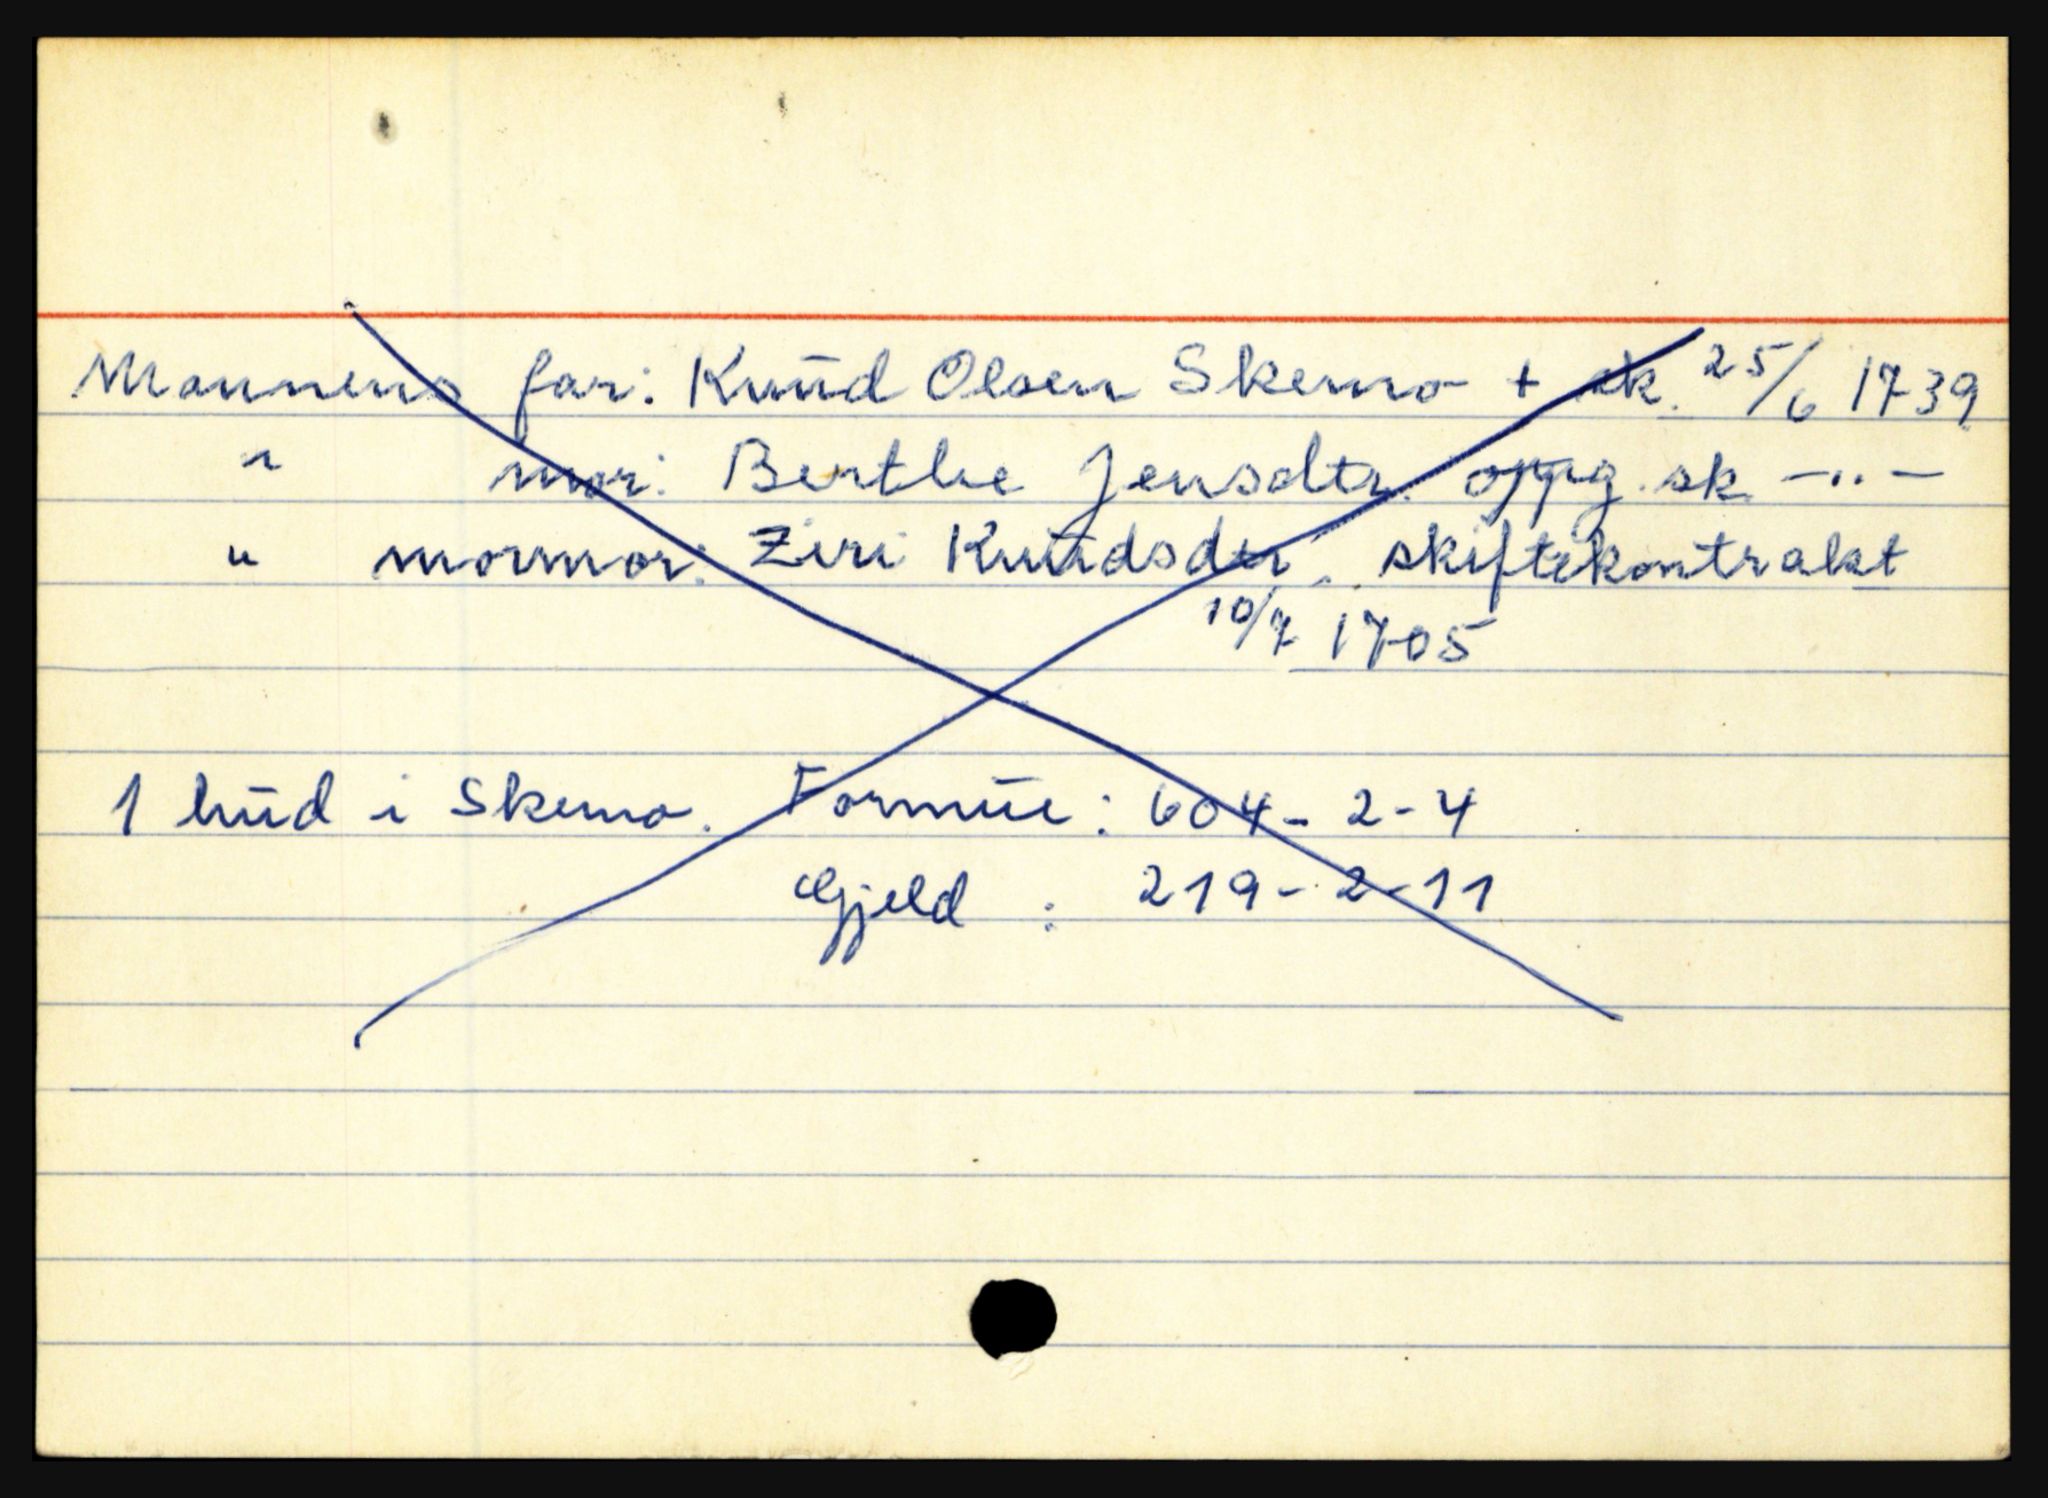 Mannens far: Knud Olsen Skemo + sk. 25/6 1739
" mor: Berthe Jensdtr. oppg. sk. -"-
" mormor: Ziri Knudsdtr. skiftekontrakt
10/7 1705
1 hud i Skemo. Formue: 604-2-4
Gjeld : 219-2-11